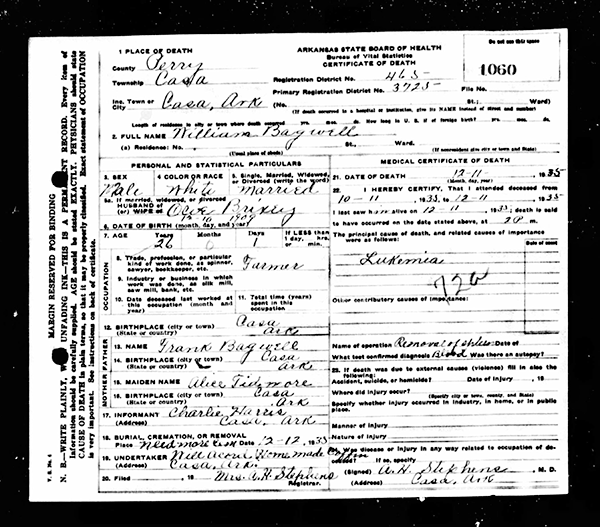 MARGIN RESERVED FOR BINDING
N. B.—WRITE PLAINLY, UNFADING INK—THIS IS A PERMANENT RECORD. Every item of
information should be carefully supplied. AGE should be stated EXACTLY. PHYSICIANS should state
CAUSE OF DEATH in plain terms, so that it may be properly classified. Exact statement of OCCUPATION
is very important. See instructions on back of certificate.
V. S. No. 4
ARKANSAS STATE BOARD OF HEALTH
Bureau of Vital Statistics
CERTIFICATE OF DEATH
Do not use this space
1060
1 PLACE OF DEATH
County Perry
Township Casa
Inc. Town or City Casa, Ark
Registration District No. 465
Primary Registration District No. 3725 File No.
(No. St.; Ward)
(If death occurred in a hospital or institution, give its NAME instead of street and number)
Length of residence in city or town where death occurred yrs. mos. ds. How long in U. S. if of foreign birth? yrs. mos. ds.
2 FULL NAME William Bagwell
(a) Residence: No. St., Ward.
(Usual place of abode) (If nonresident give city or town and State)
PERSONAL AND STATISTICAL PARTICULARS
3. SEX 4 COLOR OR RACE 5. Single, Married, Widowed, or Divorced (write the word)
Male White Married
5a. If married, widowed, or divorced
HUSBAND of
(or) WIFE of
6. DATE OF BIRTH (month, day, and year) 12-10 1909
7. AGE Years Months Days If LESS than 1 day, hrs. or min.
26 0 1
OCCUPATION
8. Trade, profession, or particular kind of work done, as spinner, sawyer, bookkeeper, etc. Farmer
9. Industry or business in which work was done, as silk mill, saw mill, bank, etc.
10. Date deceased last worked at this occupation (month and year)
11. Total time (years) spent in this occupation
12. BIRTHPLACE (city or town) Casa
(State or country) Ark
FATHER
13. NAME Frank Bagwell
14. BIRTHPLACE (city or town) Casa
(State or country) Ark
MOTHER
15. MAIDEN NAME Alice
16. BIRTHPLACE (city or town) Casa
(State or country) Ark
17. INFORMANT Charlie Harris
(Address) Casa, Ark
18. BURIAL, CREMATION, OR REMOVAL
Place Date 12-12, 1935
19. UNDERTAKER Home made
(Address) Casa, Ark.
20. Filed , 19 Mrs. A. H. Stephens
Registrar.
MEDICAL CERTIFICATE OF DEATH
21. DATE OF DEATH 12-11- 1935
(Month, day, year)
22. I HEREBY CERTIFY, That I attended deceased from
10-11 1935, to 12-11 1935
I last saw him alive on 12-11 1935; death is said
to have occurred on the date stated above, at m.
The principal cause of death, and related causes of importance were as follows: Date of onset
Lukemia
72b
Other contributory causes of importance:
Name of operation Date of
What test confirmed diagnosis Blood Was there an autopsy?
23. If death was due to external causes (violence) fill in also the following:
Accident, suicide, or homicide? Date of injury , 19
Where did injury occur?
(Specify city or town, county, and State)
Specify whether injury occurred in industry, in home, or in public place.
Manner of injury
Nature of injury
24. Was disease or injury in any way related to occupation of deceased? If so, specify
(Signed) A. H. Stephens, M. D.
(Address) Casa, Ark